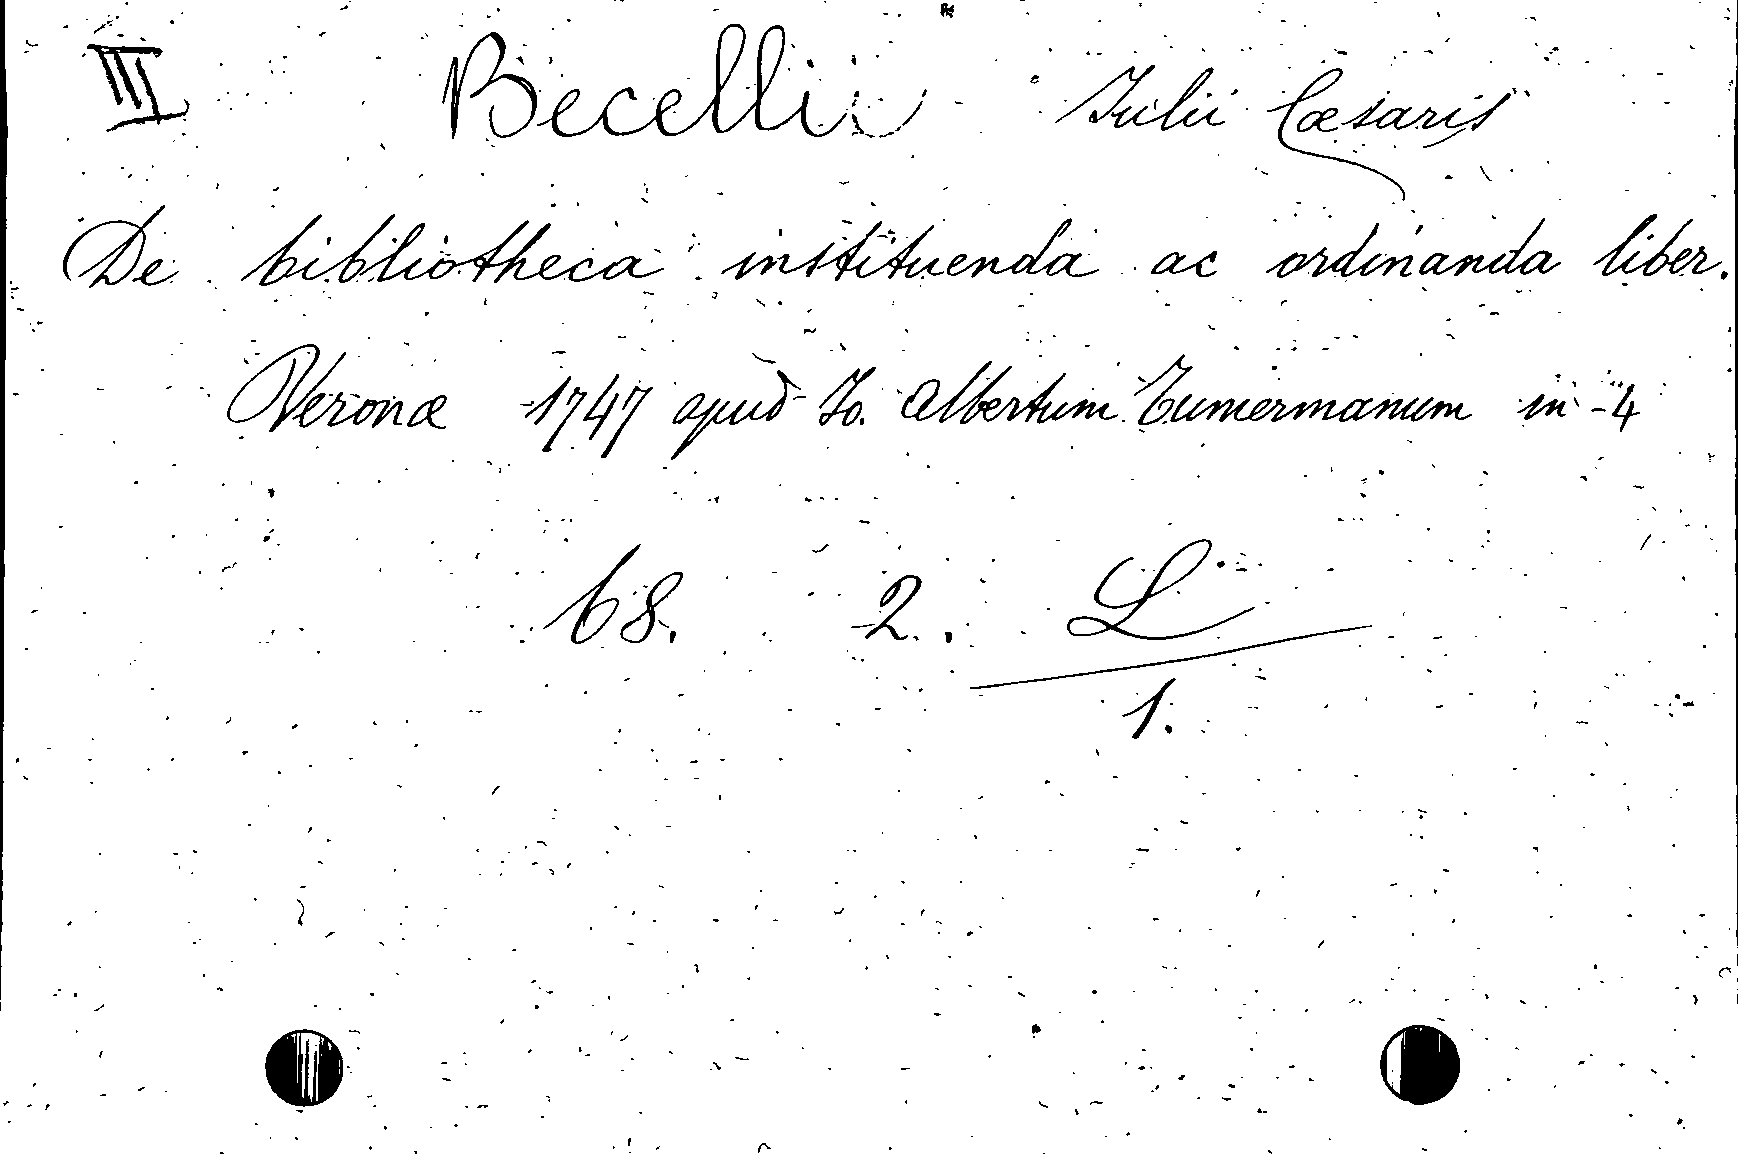 III Becellii Julii Cæsaris
De bibliotheca instituenda ac ordinanda liber.
Veronæ 1747 apud Jo. Albertum Tumermanum in-4
68. 2. L
1.